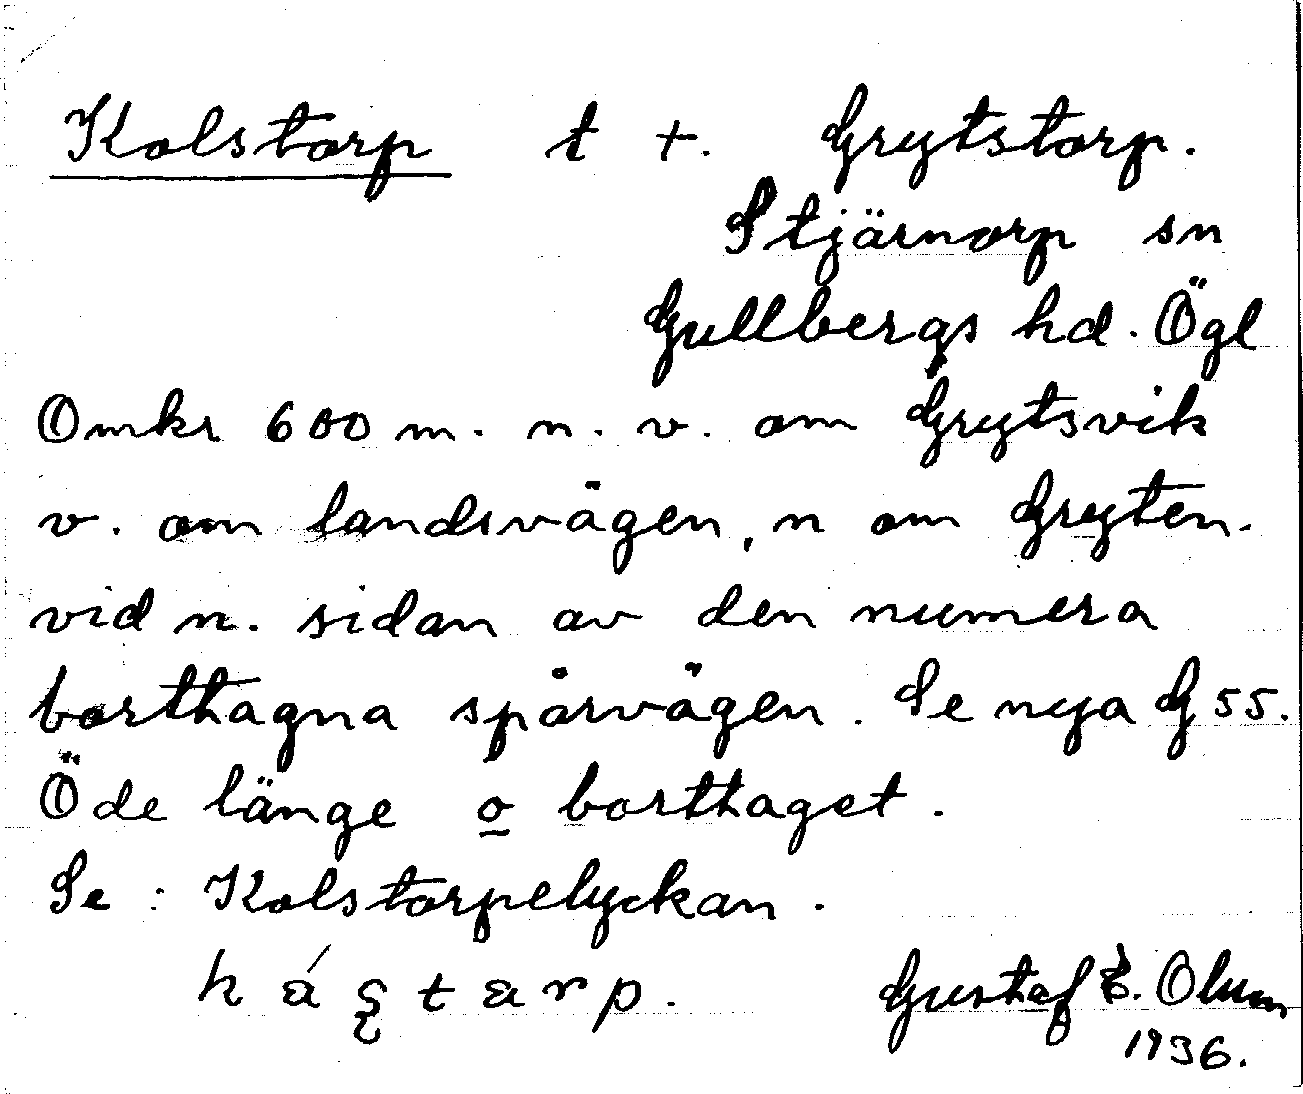 Kolstorp t +. Grytstorp.
Stjärnorp sn
Gullbergs hd. Ögl
Omkr 600 m. n. v. om Grytsvik
v. om landsvägen, n om Gryten.
vid n. sidan av den numera
borttagna spårvägen. Se nya G 55.
Öde länge o borttaget.
Se : Kolstorpelyckan.
Gustaf E. Olsson
1936.